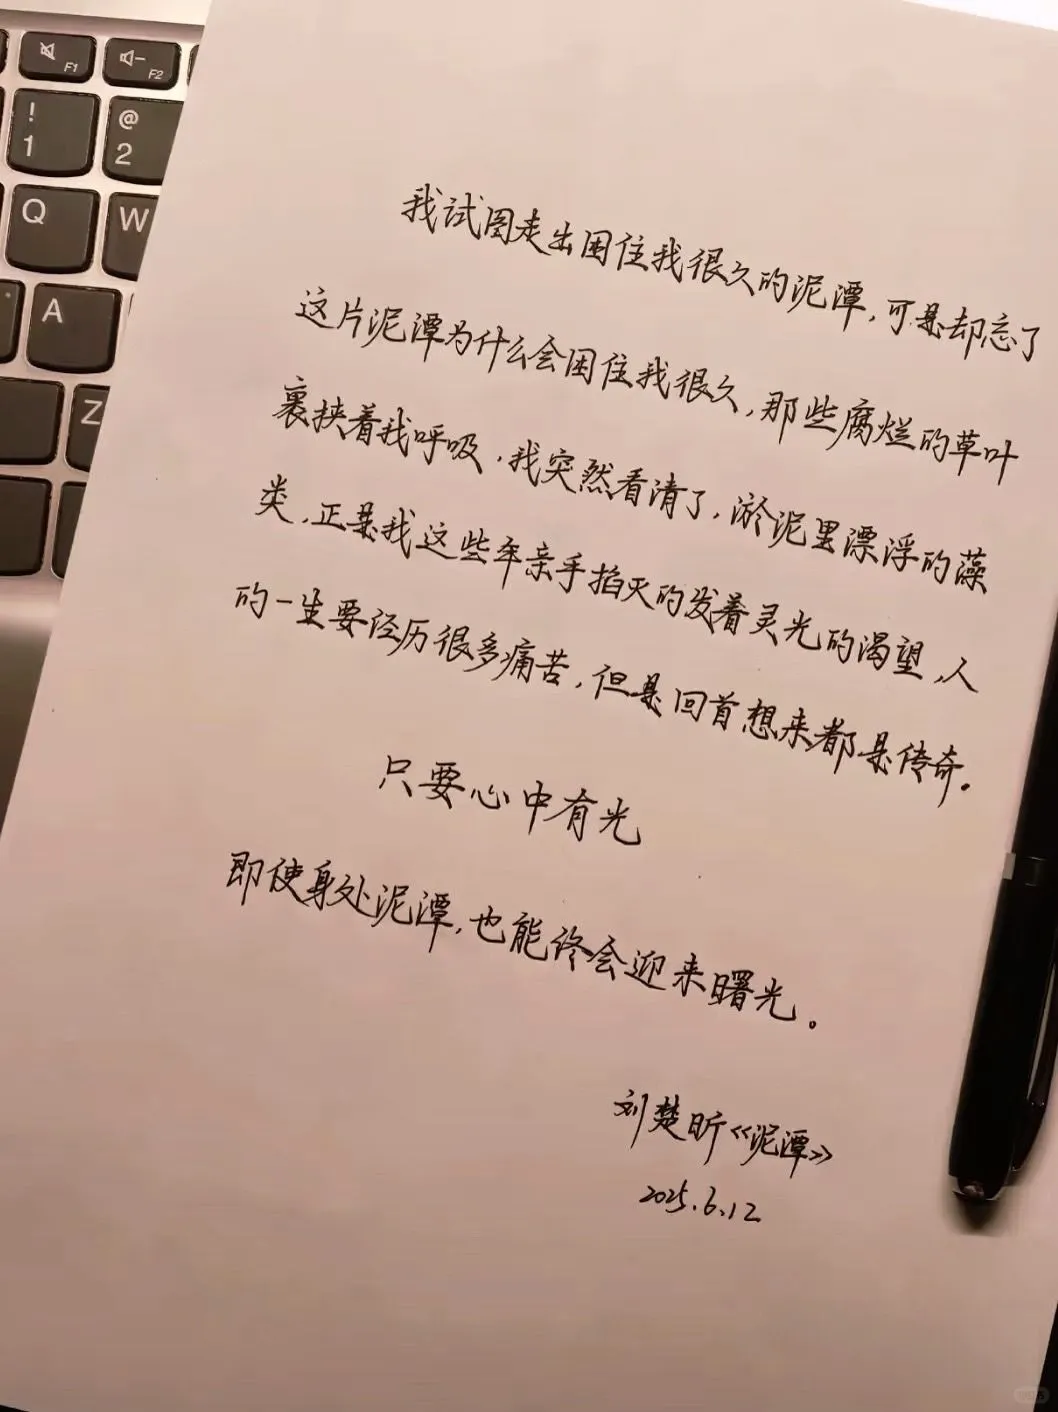 F1
F2
!
1
@
2
Q
W
A
Z
我试图走出困住我很久的泥潭,可是却忘了
这片泥潭为什么会困住我很久,那些腐烂的草叶
裹挟着我呼吸,我突然看清了,淤泥里漂浮的藻
类,正是我这些年亲手掐灭的发着灵光的渴望,人
的一生要经历很多痛苦,但是回首想来都是传奇。
只要心中有光
即使身处泥潭,也能终会迎来曙光。
刘楚昕《泥潭》
2025.6.12